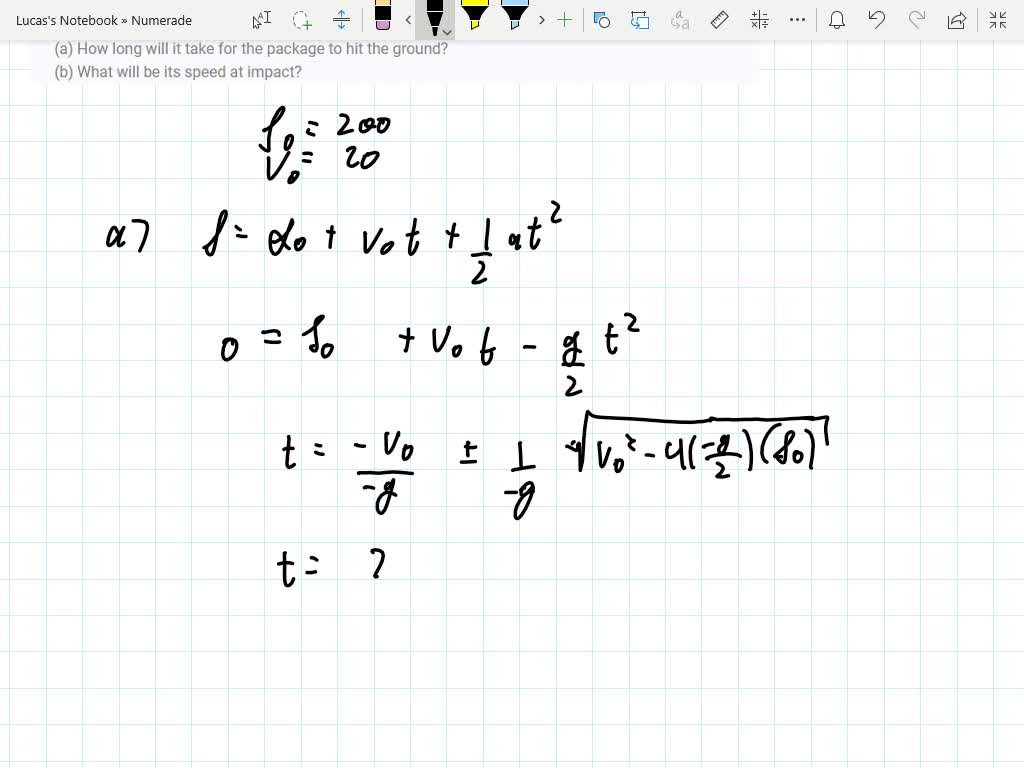 Lucas's Notebook » Numerade
(a) How long will it take for the package to hit the ground?
(b) What will be its speed at impact?
s₀ = 200
v₀ = 20
a) s = s₀ + v₀ t + 1/2 at²
0 = s₀ + v₀ t - g/2 t²
t = -v₀/-g ± 1/-g √(v₀² - 4(-g/2)(s₀))
t = ?